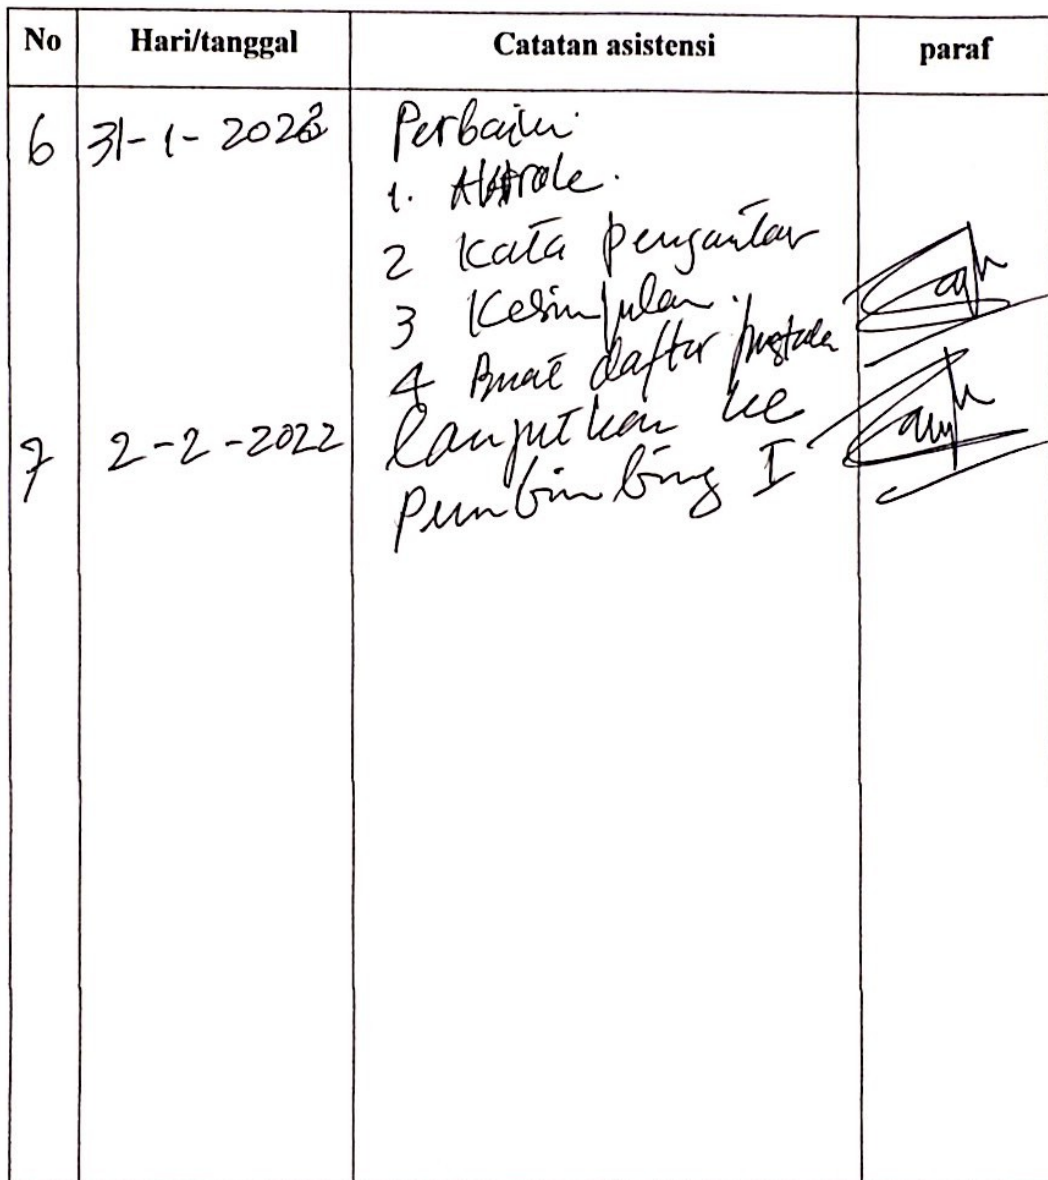 No Hari/tanggal Catatan asistensi paraf
6 31-1-2022 Perbaiki
1. Abstrak.
2 Kata pengantar
3 Kesimpulan.
4 Buat daftar pustaka
7 2-2-2022 lanjutkan ke
Pembimbing I